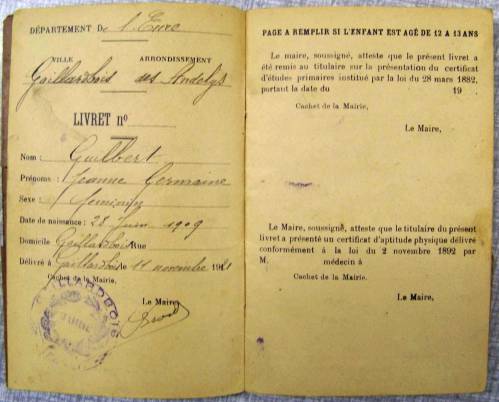 DÉPARTEMENT D l'Eure
VILLE ARRONDISSEMENT
Gaillardbois des Andelys
LIVRET nº
Nom : Guilbert
Prénoms : Jeanne Germaine
Sexe : féminin
Date de naissance : 28 Juin 1909
Domicile Gaillardbois Rue
Délivré à Gaillardbois le 11 novembre 1921
Cachet de la Mairie.
Le Maire
GAILLARDBOIS
PAGE A REMPLIR SI L'ENFANT EST AGÉ DE 12 A 13 ANS
Le maire, soussigné, atteste que le présent livret a
été remis au titulaire sur la présentation du certificat
d'études primaires institué par la loi du 28 mars 1882,
portant la date du 19
Cachet de la Mairie.
Le Maire,
Le Maire, soussigné, atteste que le titulaire du présent
livret a présenté un certificat d'aptitude physique délivré
conformément à la loi du 2 novembre 1892 par
M. médecin à
Cachet de la Mairie.
Le Maire,